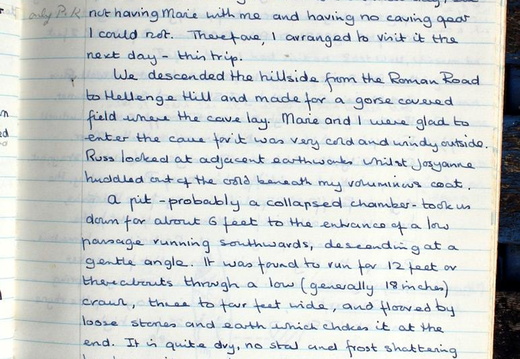 only P.R.
not having Marie with me and having no caving gear
I could not. Therefore, I arranged to visit it the
next day - this trip.
We descended the hillside from the Roman Road
to Hellenge Hill and made for a gorse covered
field where the cave lay. Marie and I were glad to
enter the cave for it was very cold and windy outside.
Russ looked at adjacent earthworks whilst Josyanne
huddled out of the cold beneath my voluminous coat.
A pit - probably a collapsed chamber - took us
down for about 6 feet to the entrance of a low
passage running southwards, descending at a
gentle angle. It was found to run for 12 feet or
thereabouts through a low (generally 18 inches)
crawl, three to four feet wide, and floored by
loose stones and earth which chokes it at the
end. It is quite dry, no stal and frost shattering